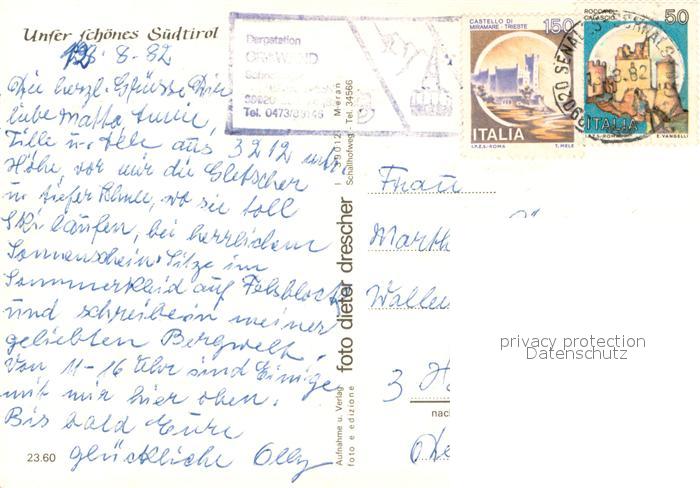 Unser schönes Südtirol
12.8.82
Die herzl. Grüsse Dir
liebe Martha
Tille u. alle aus 3212 mtr.
Höhe, vor mir die Gletscher
u. tiefer Schnee, wo sie toll
Ski laufen, bei herrlichem
Sonnenschein. Sitze im
Sommerkleid auf Felsblock
und schreibe in meiner
geliebten Bergwelt.
Von 11-16 Uhr sind Einige
mit mir hier oben.
Bis bald Eure
glückliche Olly
23.60
Bergstation
GRAWAND
Tel. 0473/
CASTELLO DI
MIRAMARE - TRIESTE
150
ITALIA
I.P.Z.S.-ROMA
T. MELE
ROCCA DI
CALASCIO
50
ITALIA
I.P.Z.S.-ROMA
E. VANGELLI
39020 SENALES
Aufnahme u. Verlag
foto e edizione
foto dieter drescher
I 39012 Meran
Schallhofweg Tel. 34566
Frau
Marth
Wallen
3 H
nach
privacy protection
Datenschutz